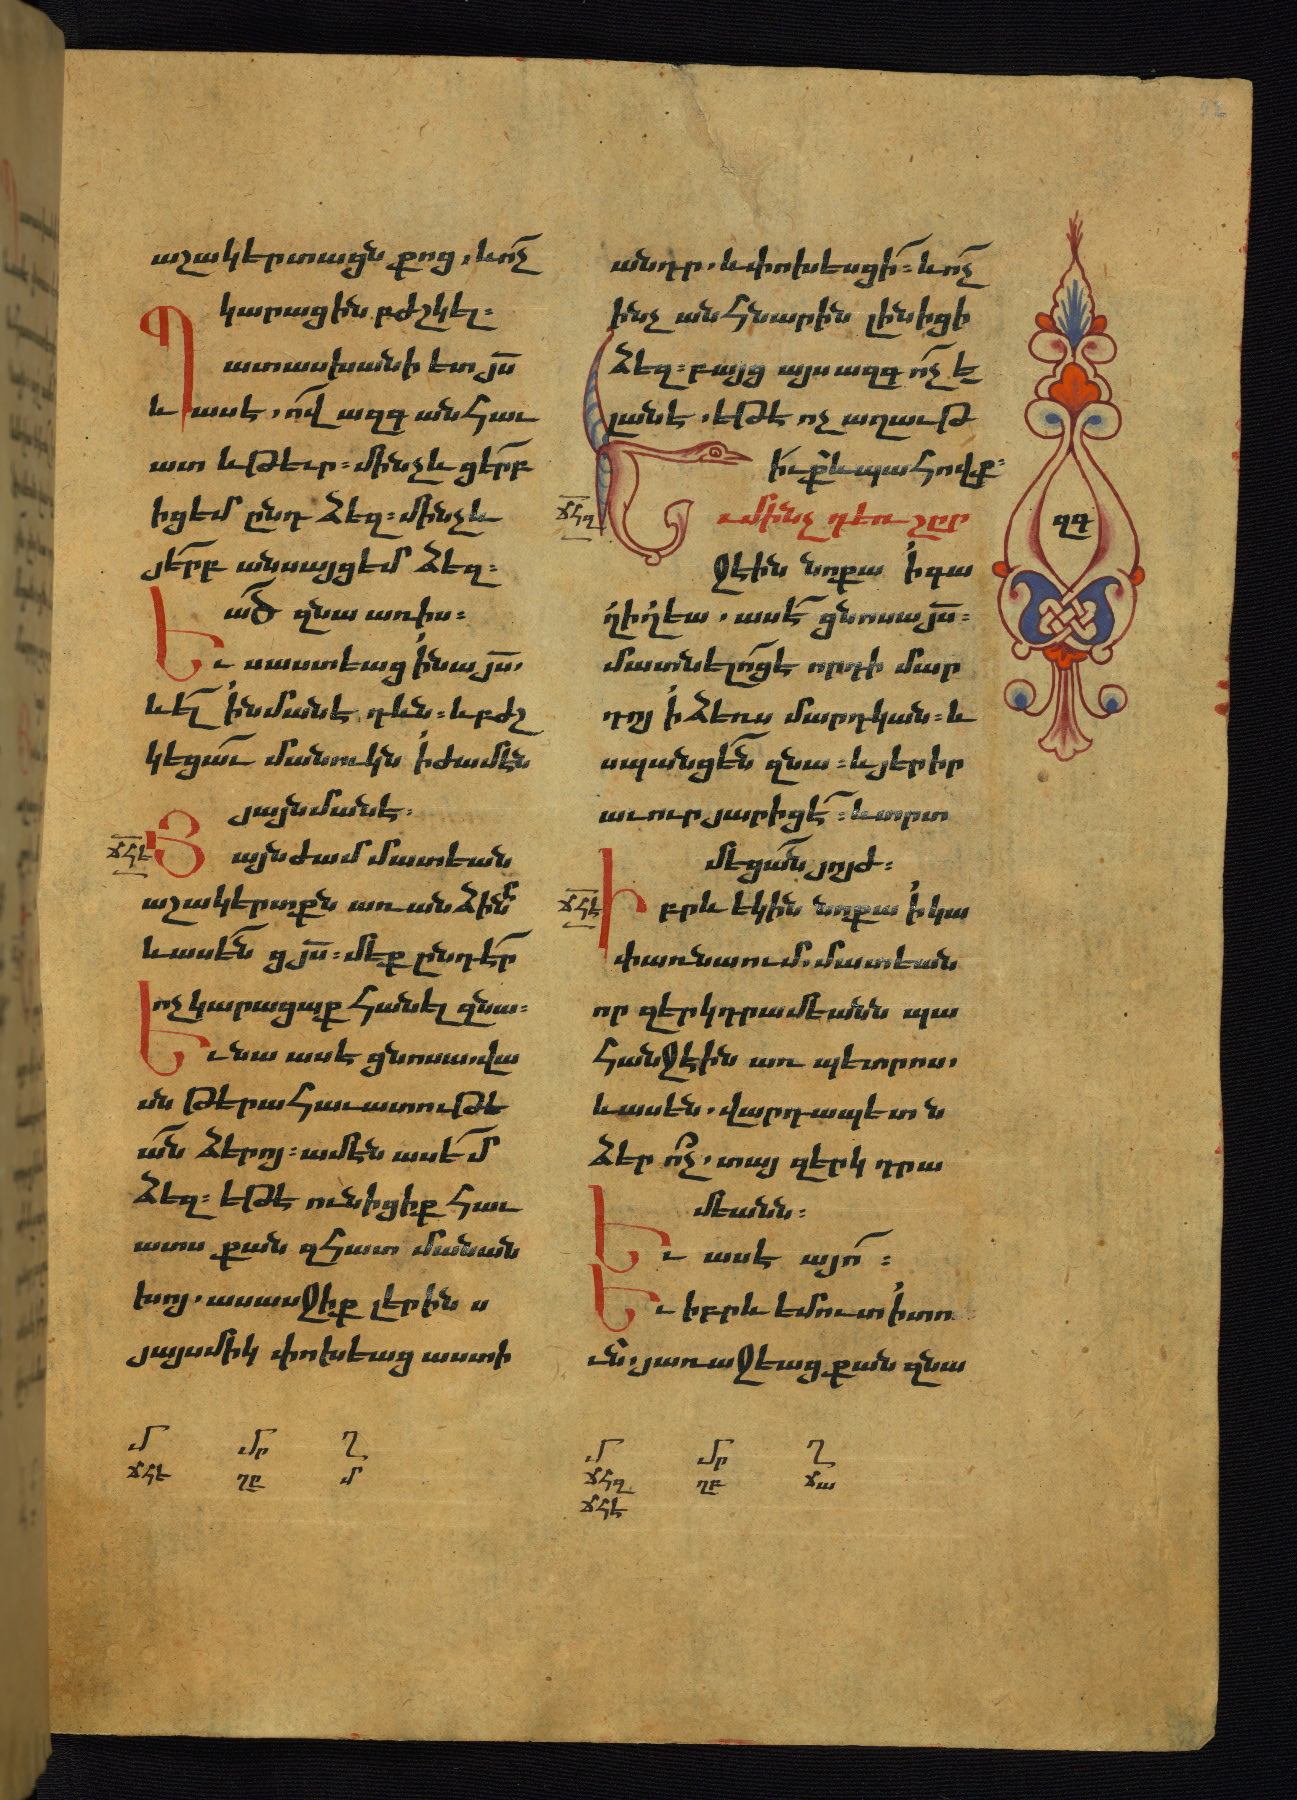 աշակերտացն քոց, և ո՛չ
կարացին բժշկել։
Պ
ատասխանի ետ յս
և ասէ, ո՛վ ազգ անհաւ
ատ և թեւր։ մինչև ցե՛րբ
իցեմ ընդ ձեզ։ մինչև
յե՛րբ անսայցեմ ձեզ։
ա՛ծ զնա առիս։
Ե
ւ սաստեաց ինա յս,
և ել ինմանէ դևն։ և բժշ
կեցաւ մանուկն իժամէն
յայնմանէ.
ՃՀԵ
Յ
այնժամ մատեան
աշակերտքն առանձինն
և ասեն ցյս։ մեք ընդէր
ոչ կարացաք հանել զնա։
Ե
ւ նա ասէ ցնոսա. վա
սն թերահաւատութե
ան ձերոյ։ ամէն ասեմ
ձեզ։ եթէ ունիցիք հաւ
ատս քան զհատ մանան
խոյ, ասասջիք լերին ս
յայսմիկ փոխեաց աստի
մ մր ղ
ՃՀԵ ՂԸ Մ
անդր, և փոխեսցի։ և ո՛չ
ինչ անհնարին լինիցի
ձեզ։ բայց այս ազգ ո՛չ ե
լանէ, եթէ ոչ աղաւթ
իւք և պահովք։
ՃՀԶ
Ե
ւ մինչ դեռ շըր
ջէին նոքա ի գա
ղիղեա, ասէ ցնոսա յս։
մատնելոց է որդի մար
դոյ ի ձեռս մարդկան։ և
սպանցեն զնա։ և յերիր
աւուր յարիցէ։ և տրտ
մեցան յոյժ։
ՃՀԷ
Ի
բրև եկին նոքա ի կա
փառնաում. մատեան
որ զերկդրամեանն պա
հանջէին առ պետրոս,
և ասեն, վարդապետ ն
ձեր ո՞չ, տայ զերկ դրա
մեանն։
Ե
ւ ասէ այո՛։
Ե
ւ իբրև եմուտ ի տո
ւն, յառաջեաց քան զնա
մ մր ղ
ՃՀԶ ՂԲ ՃԱ
ՃՀԷ
ԶԳ